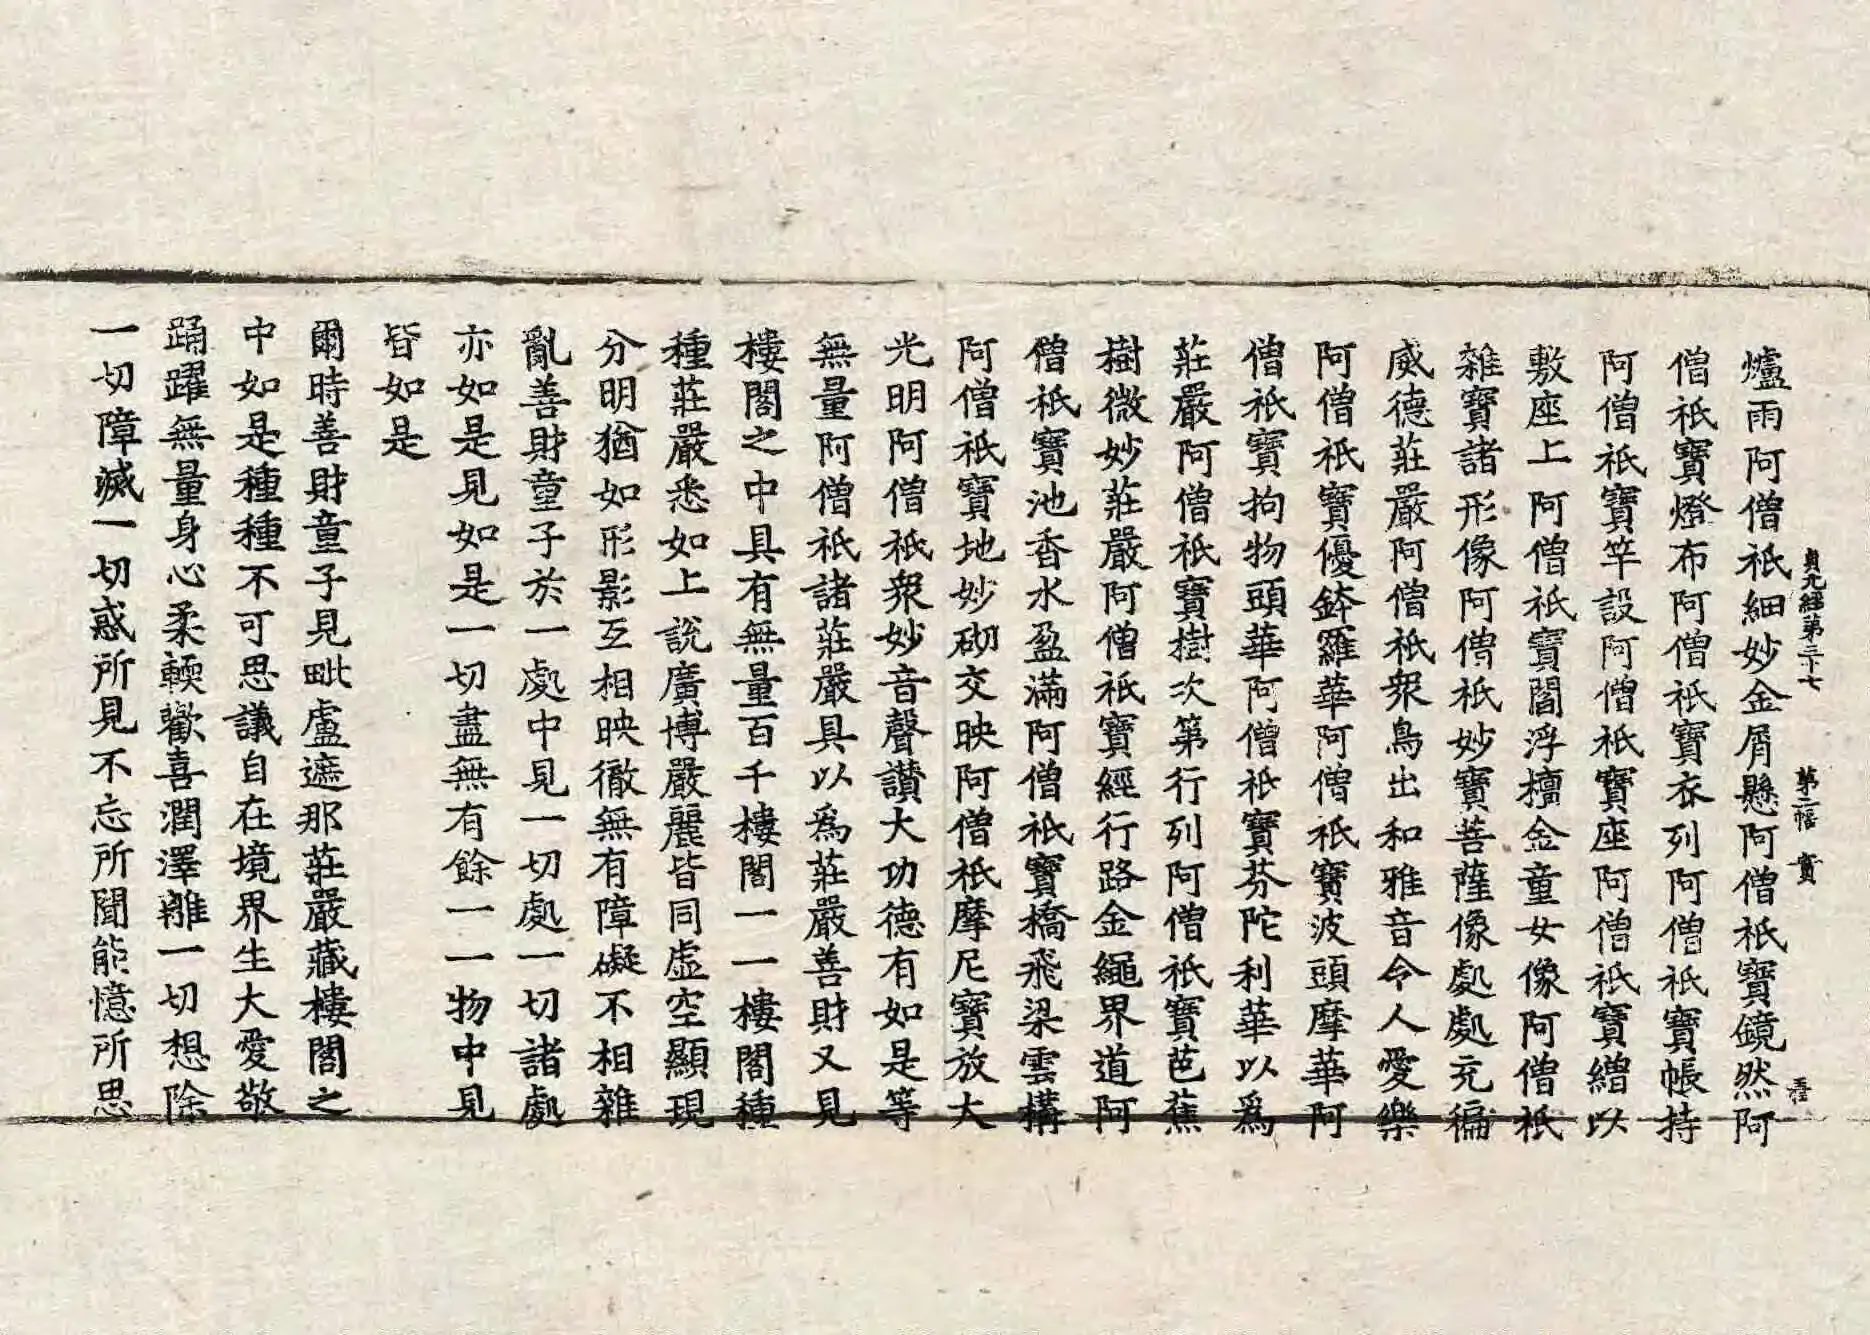 貞元經第三十七 第二幅 實
爐雨阿僧祇細妙金屑懸阿僧祇寶鏡然阿
僧祇寶燈布阿僧祇寶衣列阿僧祇寶帳持
阿僧祇寶竿設阿僧祇寶座阿僧祇寶繒以
敷座上阿僧祇寶閻浮檀金童女像阿僧祇
雜寶諸形像阿僧祇妙寶菩薩像處處充徧
威德莊嚴阿僧祇衆鳥出和雅音令人愛樂
阿僧祇寶優鉢羅華阿僧祇寶波頭摩華阿
僧祇寶拘物頭華阿僧祇寶芬陀利華以爲
莊嚴阿僧祇寶樹次第行列阿僧祇寶芭蕉
樹微妙莊嚴阿僧祇寶經行路金繩界道阿
僧祇寶池香水盈滿阿僧祇寶橋飛梁雲構
阿僧祇寶地妙砌交映阿僧祇摩尼寶放大
光明阿僧祇衆妙音聲讃大功德有如是等
無量阿僧祇諸莊嚴具以爲莊嚴善財又見
樓閣之中具有無量百千樓閣一一樓閣種
種莊嚴悉如上說廣博嚴麗皆同虛空顯現
分明猶如形影互相映徹無有障礙不相雜
亂善財童子於一處中見一切處一切諸處
亦如是見如是一切盡無有餘一一物中見
皆如是
爾時善財童子見毗盧遮那莊嚴藏樓閣之
中如是種種不可思議自在境界生大愛敬
踊躍無量身心柔輭歡喜潤澤離一切想除
一切障滅一切惑所見不忘所聞能憶所思